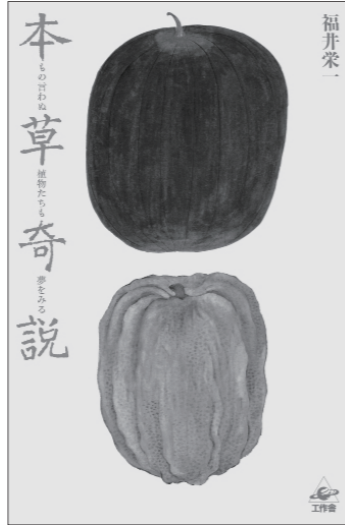 福井栄一
本草奇説
もの言わぬ植物たちも夢をみる
工作舎